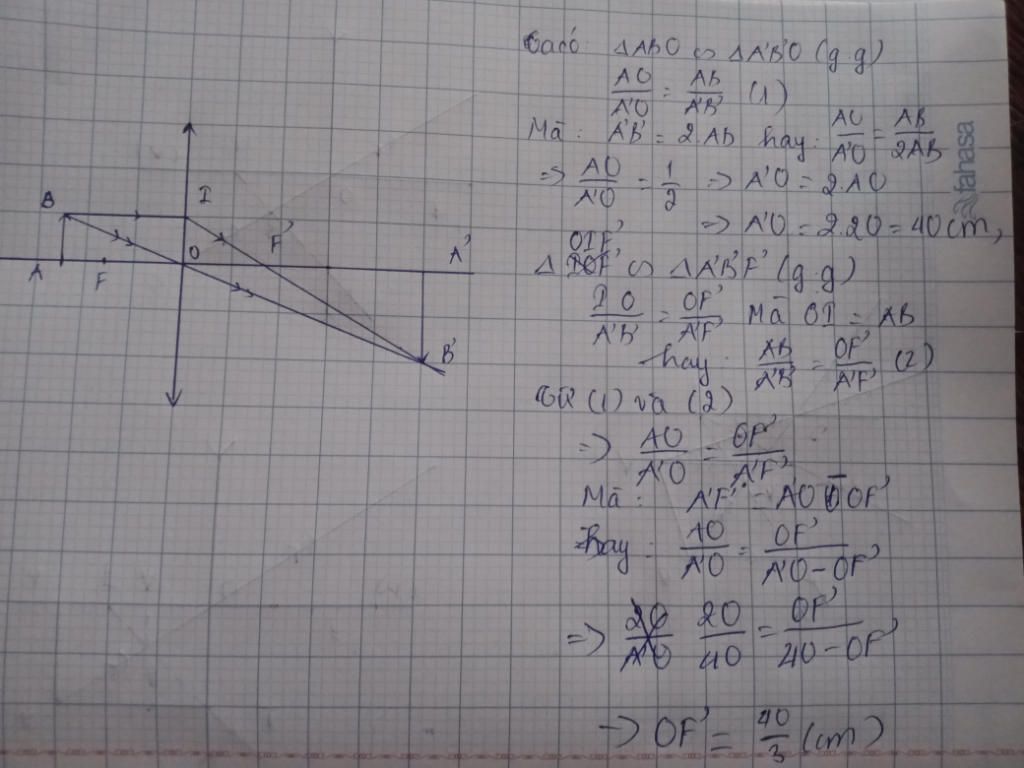 Ta có: ΔABO ∽ ΔA'B'O (g.g)
AO/A'O = AB/A'B' (1)
Mà: A'B' = 2AB hay: AO/A'O = AB/2AB
=> AO/A'O = 1/2 => A'O = 2.AO
=> A'O = 2.20 = 40cm,
Δ OIF' ∽ ΔA'B'F' (g.g)
IO/A'B' = OF'/A'F' Mà OI = AB
hay: AB/A'B' = OF'/A'F' (2)
Từ (1) và (2)
=> AO/A'O = OF'/A'F'
Mà: A'F' = AO - OF'
Hay: AO/A'O = OF'/A'O - OF'
=> 20/40 = OF'/40 - OF'
-> OF' = 40/3 (cm)
B
I
F'
A
F
O
A'
B'
fahasa